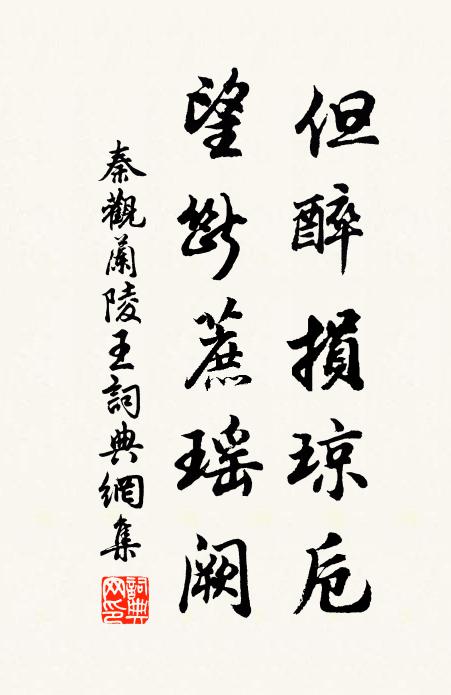 但醉損琼卮
望斷蔗瑶阙
秦觀蘭陵王詞典網集
詞典网印